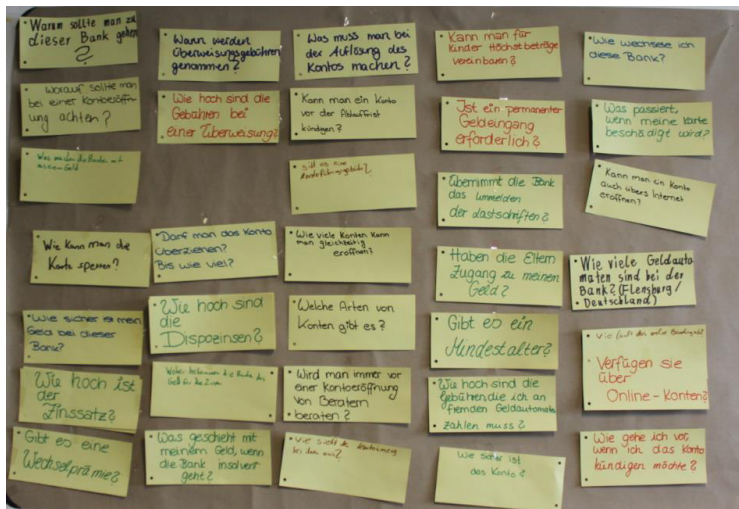 Warum sollte man zu
dieser Bank gehen
?
Worauf sollte man
bei einer Kontoeröff-
nung achten?
Was machen die Banken mit
meinem Geld
Wie kann man die
Karte sperren?
Wie sicher ist mein
Geld bei dieser
Bank?
Wie hoch ist
der
Zinssatz?
Gibt es eine
Wechselprämie?
Wann werden
Überweisungsgebühren
genommen?
Wie hoch sind die
Gebühren bei
einer Überweisung?
Darf man das Konto
überziehen?
Bis wie viel?
Wie hoch sind
die
Dispozinsen?
Woher bekommen die Banken das
Geld für die Zinsen
Was geschieht mit
meinem Geld, wenn
die Bank insolvent
geht?
Was muss man bei
der Auflösung des
Kontos machen?
Kann man ein Konto
vor der Ablauffrist
kündigen?
Gibt es eine
Kontoführungsgebühr?
Wie viele Konten kann
man gleichzeitig
eröffnen?
Welche Arten von
Konten gibt es?
Wird man immer vor
einer Kontoeröffnung
von Beratern
beraten?
Wie sieht die
bei
aus?
Kann man für
Kinder Höchstbeträge
vereinbaren?
Ist ein permanenter
Geldeingang
erforderlich?
Übernimmt die Bank
das ummelden
der Lastschriften?
Haben die Eltern
Zugang zu meinem
Geld?
Gibt es ein
Mindestalter?
Wie hoch sind die
Gebühren, die ich an
fremden Geldautomaten
zahlen muss?
Wie sicher ist
das Konto?
Wie wechsele ich
diese Bank?
Was passiert,
wenn meine Karte
beschädigt wird?
Kann man ein Konto
auch übers Internet
eröffnen?
Wie viele Geldauto
maten sind bei der
Bank? (Flensburg/
Deutschland)
Wie läuft das online Banking ab?
Verfügen sie
über
Online-Konten?
Wie gehe ich vor,
wenn ich das Konto
kündigen möchte?